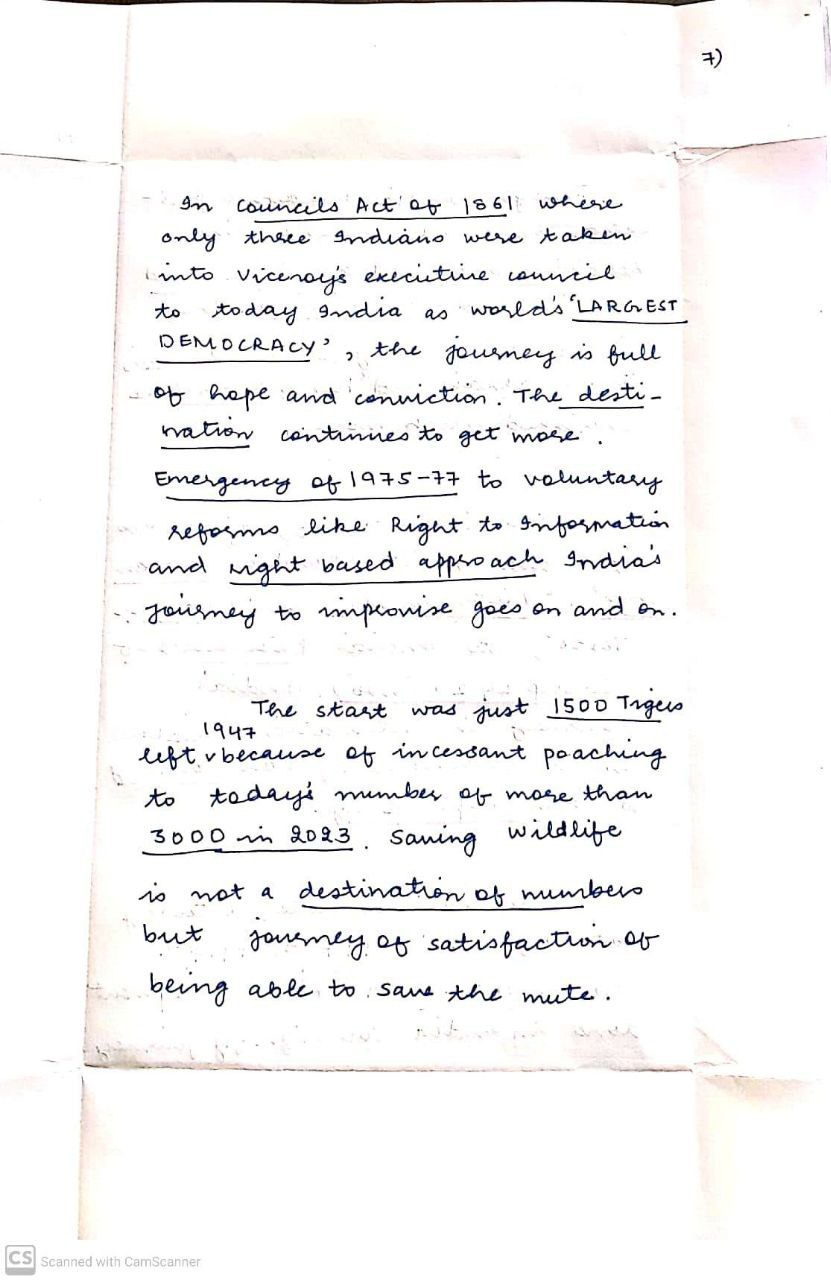 7)
In Councils Act of 1861 where
only three Indians were taken
into Viceroy's executive council
to today India as world's 'LARGEST
DEMOCRACY', the journey is full
of hope and conviction. The desti-
nation continues to get more.
Emergency of 1975-77 to voluntary
reforms like Right to Information
and right based approach India's
journey to improvise goes on and on.
The start was just 1500 Tigers
1947
left v because of incessant poaching
to today's number of more than
3000 in 2023. Saving wildlife
is not a destination of numbers
but journey of satisfaction of
being able to save the mute.
CS Scanned with CamScanner